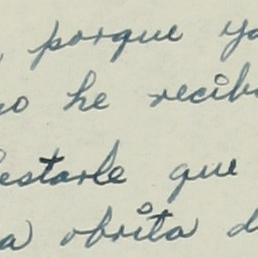 , porque ya
no he recib
estarle que
a obrita d